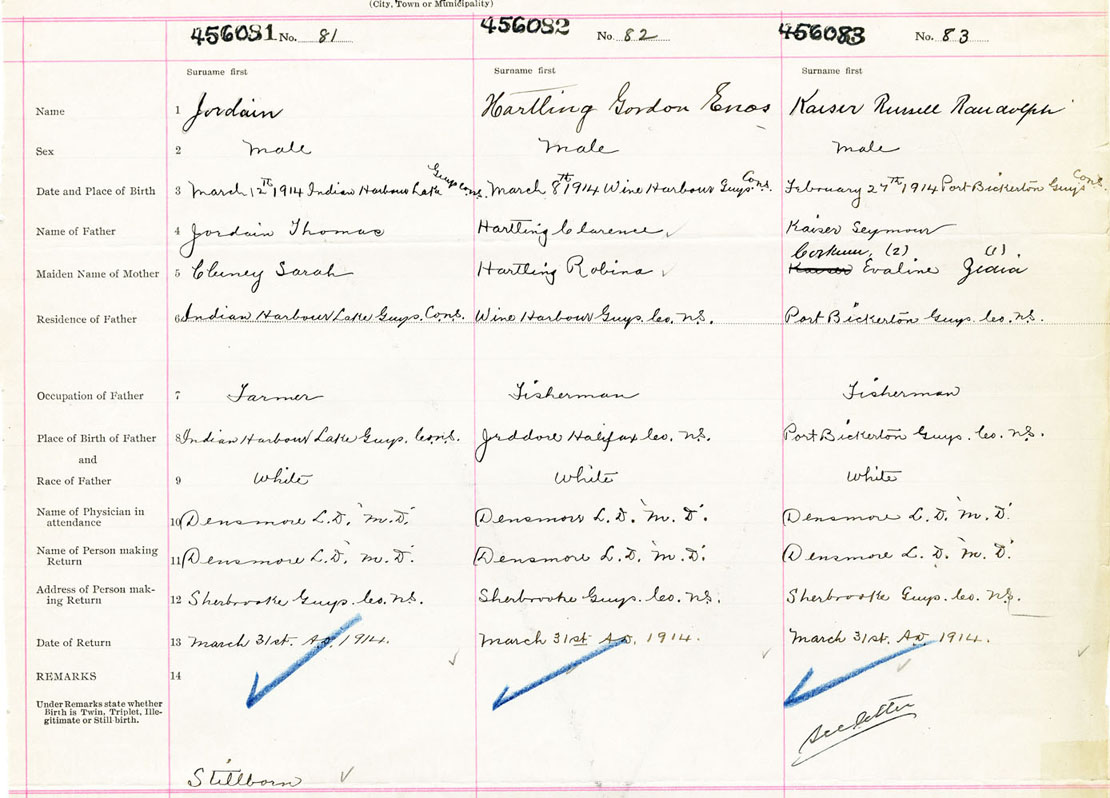 (City, Town or Municipality)
456081 No. 81 456082 No. 82 456083 No. 83
Surname first Surname first Surname first
Name 1 Jordain Hartling Gordon Enos Kaiser Russell Randolph
Sex 2 Male Male Male
Guys Cons. Cons. Cons.
Date and Place of Birth 3 March 12th 1914 Indian Harbour Lake March 8th 1914 Wine Harbour Guys February 27th 1914 Port Bickerton Guys
Name of Father 4 Jordain Thomas Hartling Clarence Kaiser Seymour
Corkum, (2) (1)
Maiden Name of Mother 5 Cluney Sarah Hartling Robina Kaiser Evaline
Residence of Father 6 Indian Harbour Lake Guys. Cons. Wine Harbour Guys. Co. N.S. Port Bickerton Guys. Co. N.S.
Occupation of Father 7 Farmer Fisherman Fisherman
Place of Birth of Father 8 Indian Harbour Lake Guys. Cons. Jeddore Halifax Co. N.S. Port Bickerton Guys. Co. N.S.
and
Race of Father 9 White White White
Name of Physician in
attendance 10 Densmore L. D. M. D. Densmore L. D. M. D. Densmore L. D. M. D.
Name of Person making
Return 11 Densmore L. D. M. D. Densmore L. D. M. D. Densmore L. D. M. D.
Address of Person mak-
ing Return 12 Sherbrooke Guys. Co. N.S. Sherbrooke Guys. Co. N.S. Sherbrooke Guys. Co. N.S.
Date of Return 13 March 31st. A.D. 1914. March 31st A.D. 1914. March 31st. A.D. 1914.
REMARKS 14
Under Remarks state whether
Birth is Twin, Triplet, Ille-
gitimate or Still-birth.
See letter
Stillborn